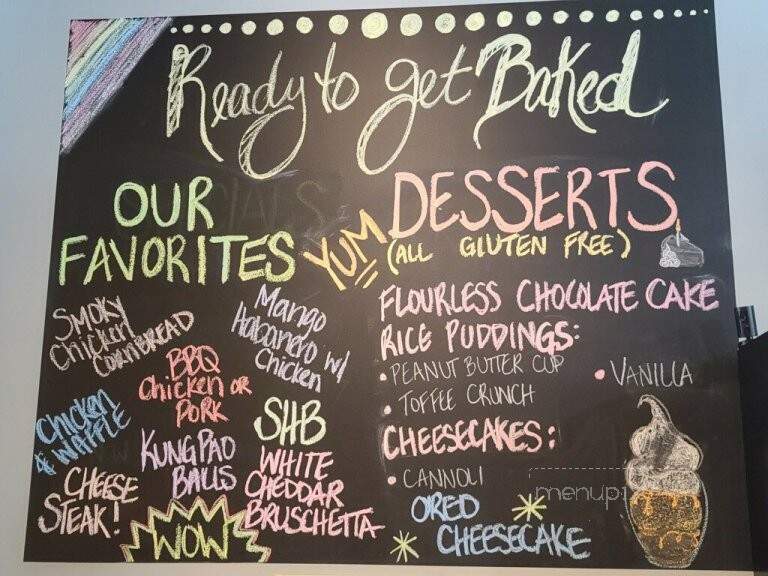 Ready to get Baked
OUR
FAVORITES
SMOKY
Chicken
CORNBREAD
Mango
Habanero w/
Chicken
BBQ
Chicken or
PORK
Chicken
& WAFFLE
SHB
KUNG PAO
BALLS
WHITE
CHEDDAR
BRUSCHETTA
CHEESE
STEAK!
WOW
YUM
DESSERTS
(ALL GLUTEN FREE)
FLOURLESS CHOCOLATE CAKE
RICE PUDDINGS:
• PEANUT BUTTER CUP
• VANILLA
• TOFFEE CRUNCH
CHEESECAKES:
• CANNOLI
OREO
CHEESECAKE
menupix